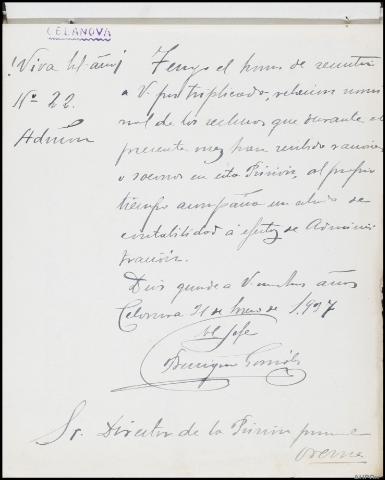 CELANOVA
¡Viva el año!
Nº 22.
Admon
Tengo el honor de remitir
a V. por triplicado, relacion nomi
nal de los reclusos que durante el
presente mes han recibido racion
o socorros en esta Prision, al propio
tiempo acompaña un estado de
contabilidad á efectos de Adminis
tración.
Dios guarde a V. muchos años
Celanova 31 de Enero de 1.937
El Jefe
Sr. Director de la Prision provincial
Orense